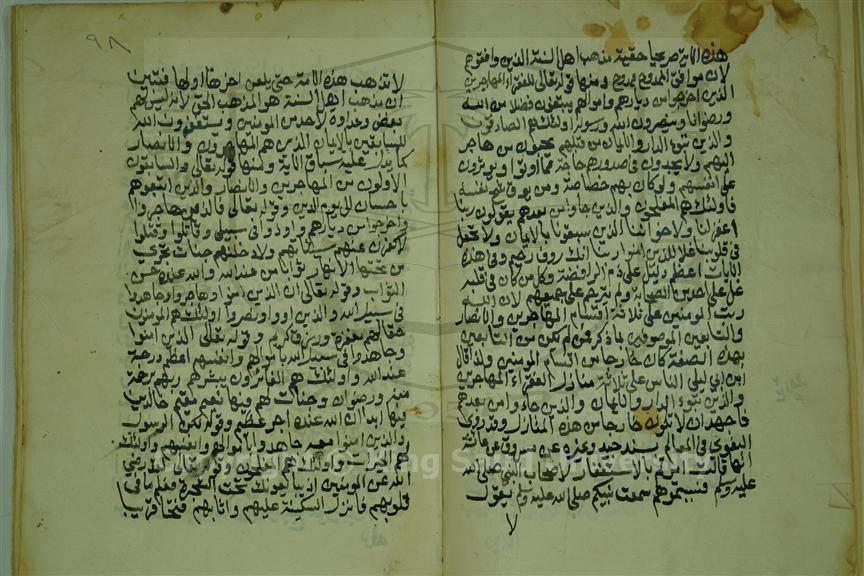 هذه الاية صريحا حقية مذهب اهل السنة الذين وافقوهم
لان موافق الممدوح ممدوح ومنها قوله تعالى للفقراء المهاجرين
الذين اخرجوا من ديارهم واموالهم يبتغون فضلا من الله
ورضوانا وينصرون الله ورسوله اولئك هم الصادقون
والذين تبوؤا الدار والايمان من قبلهم يحبون من هاجر
اليهم ولا يجدون في صدورهم حاجة مما اوتوا ويوثرون
على انفسهم ولو كان بهم خصاصة ومن يوق شح نفسه
فاولئك هم المفلحون والذين جاوا من بعدهم يقولون ربنا
اغفر لنا ولاخواننا الذين سبقونا بالايمان ولا تجعل
في قلوبنا غلا للذين امنوا ربنا انك روف رحيم وفي هذه
الايات اعظم دليل على ذم الرافضة وكل من كان في قلبه
غل على احد من الصحابة ولم يترحم على جميعهم لان الله
رتب المومنين على ثلاثة اقسام المهاجرين والانصار
والتابعين الموصوفين بما ذكر فمن لم يكن من التابعين
بهذه الصفة كان خارجا من اقسام المومنين ولذا قال
ابن ابي ليلى الناس على ثلاثة منازل الفقراء المهاجرين
والذين تبوؤ الدار والايمان والذين جاءوا من بعدهم
فاجهد ان لا تكون خارجا من هذه المنازل وقد روى
البغوي في المعالم بسند جيد وغيره عن مسروق عن عائشة
انها قالت امرتم بالاستغفار لاصحاب النبي صلى الله
عليه وسلم فسببتموهم سمعت نبيكم صلى الله عليه وسلم يقول
لا
٩٨
لا تذهب هذه الامة حتى يلعن اخرها اولها فتبين
ان مذهب اهل السنة هو المذهب الحق لانه ليس لهم
بغض وعداوة لاحد من المومنين ويستغفرون الله
للسابقين بالايمان الذين هم المهاجرون والانصار
كما يدل عليه سياق الاية ومنها قوله تعالى والسابقون
الاولون من المهاجرين والانصار والذين اتبعوهم
باحسان الى يوم الدين وقوله تعالى فالذين هاجروا
واخرجوا من ديارهم واوذوا في سبيلي وقاتلوا وقتلوا
لاكفرن عنهم سيئاتهم ولادخلنهم جنات تجري
من تحتها الانهار ثوابا من عند الله والله عنده حسن
الثواب وقوله تعالى ان الذين امنوا وهاجروا وجاهدوا
في سبيل الله والذين اووا ونصروا اولئك هم المومنون
حقا لهم مغفرة ورزق كريم وقوله تعالى الذين امنوا
وجاهدوا في سبيل الله باموالهم وانفسهم اعظم درجة
عند الله واولئك هم الفائزون يبشرهم ربهم برحمة
منه ورضوان وجنات لهم فيها نعيم مقيم خالدين
فيها ابدا ان الله عنده اجر عظيم وقوله لكن الرسول
والذين امنوا معه جاهدوا باموالهم وانفسهم واولئك
لهم الخيرات واولئك هم المفلحون وقوله لقد رضي
الله عن المومنين اذ يبايعونك تحت الشجرة فعلم ما في
قلوبهم فانزل السكينة عليهم واثابهم فتحا قريبا